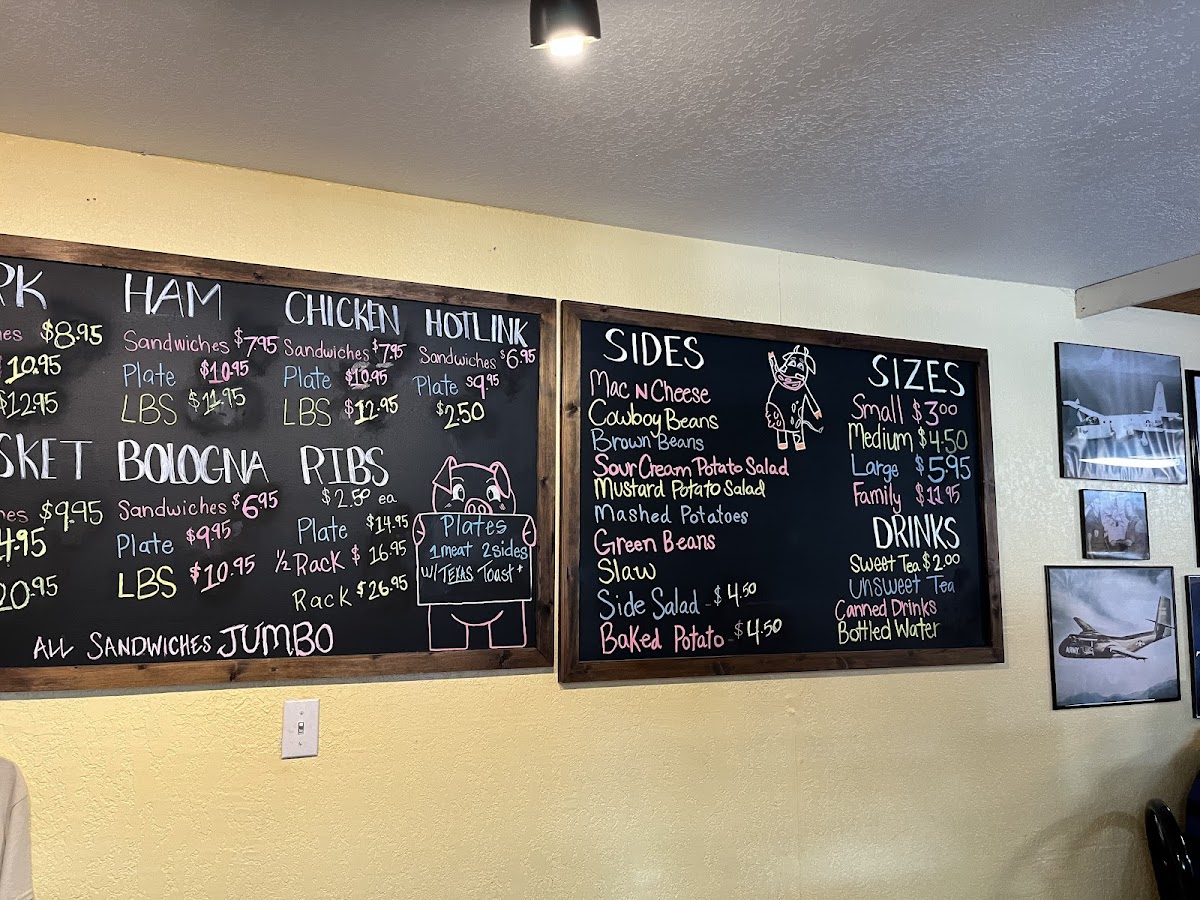 PK
$8.95
10.95
$12.95
HAM
Sandwiches $7.95
Plate $10.95
LBS $11.95
CHICKEN
Sandwiches $7.95
Plate $10.95
LBS $12.95
HOTLINK
Sandwiches $6.95
Plate $9.95
$2.50
SKET
$9.95
4.95
20.95
BOLOGNA
Sandwiches $6.95
Plate $9.95
LBS $10.95
RIBS
$2.50 ea
Plate $14.95
1/2 Rack $16.95
Rack $26.95
Plates
1meat 2sides
w/ TEXAS Toast
ALL SANDWICHES JUMBO
SIDES
Mac N Cheese
Cowboy Beans
Brown Beans
Sour Cream Potato Salad
Mustard Potato Salad
Mashed Potatoes
Green Beans
Slaw
Side Salad - $4.50
Baked Potato - $4.50
SIZES
Small $3.00
Medium $4.50
Large $5.95
Family $11.95
DRINKS
Sweet Tea $2.00
Unsweet Tea
Canned Drinks
Bottled Water
ARMY